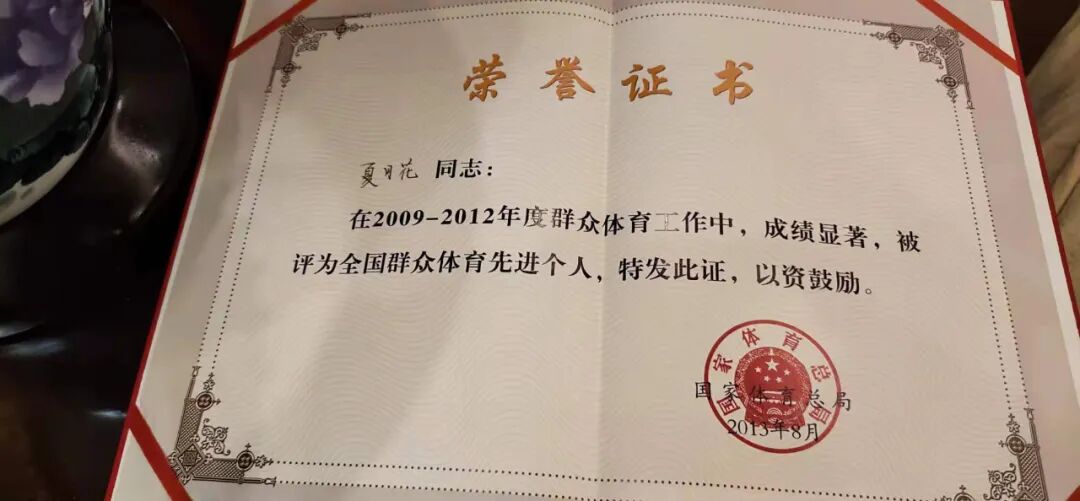 荣誉证书
夏月花 同志：
在2009-2012年度群众体育工作中，成绩显著，被
评为全国群众体育先进个人，特发此证，以资鼓励。
国家体育总局
国家体育总局
2013年8月